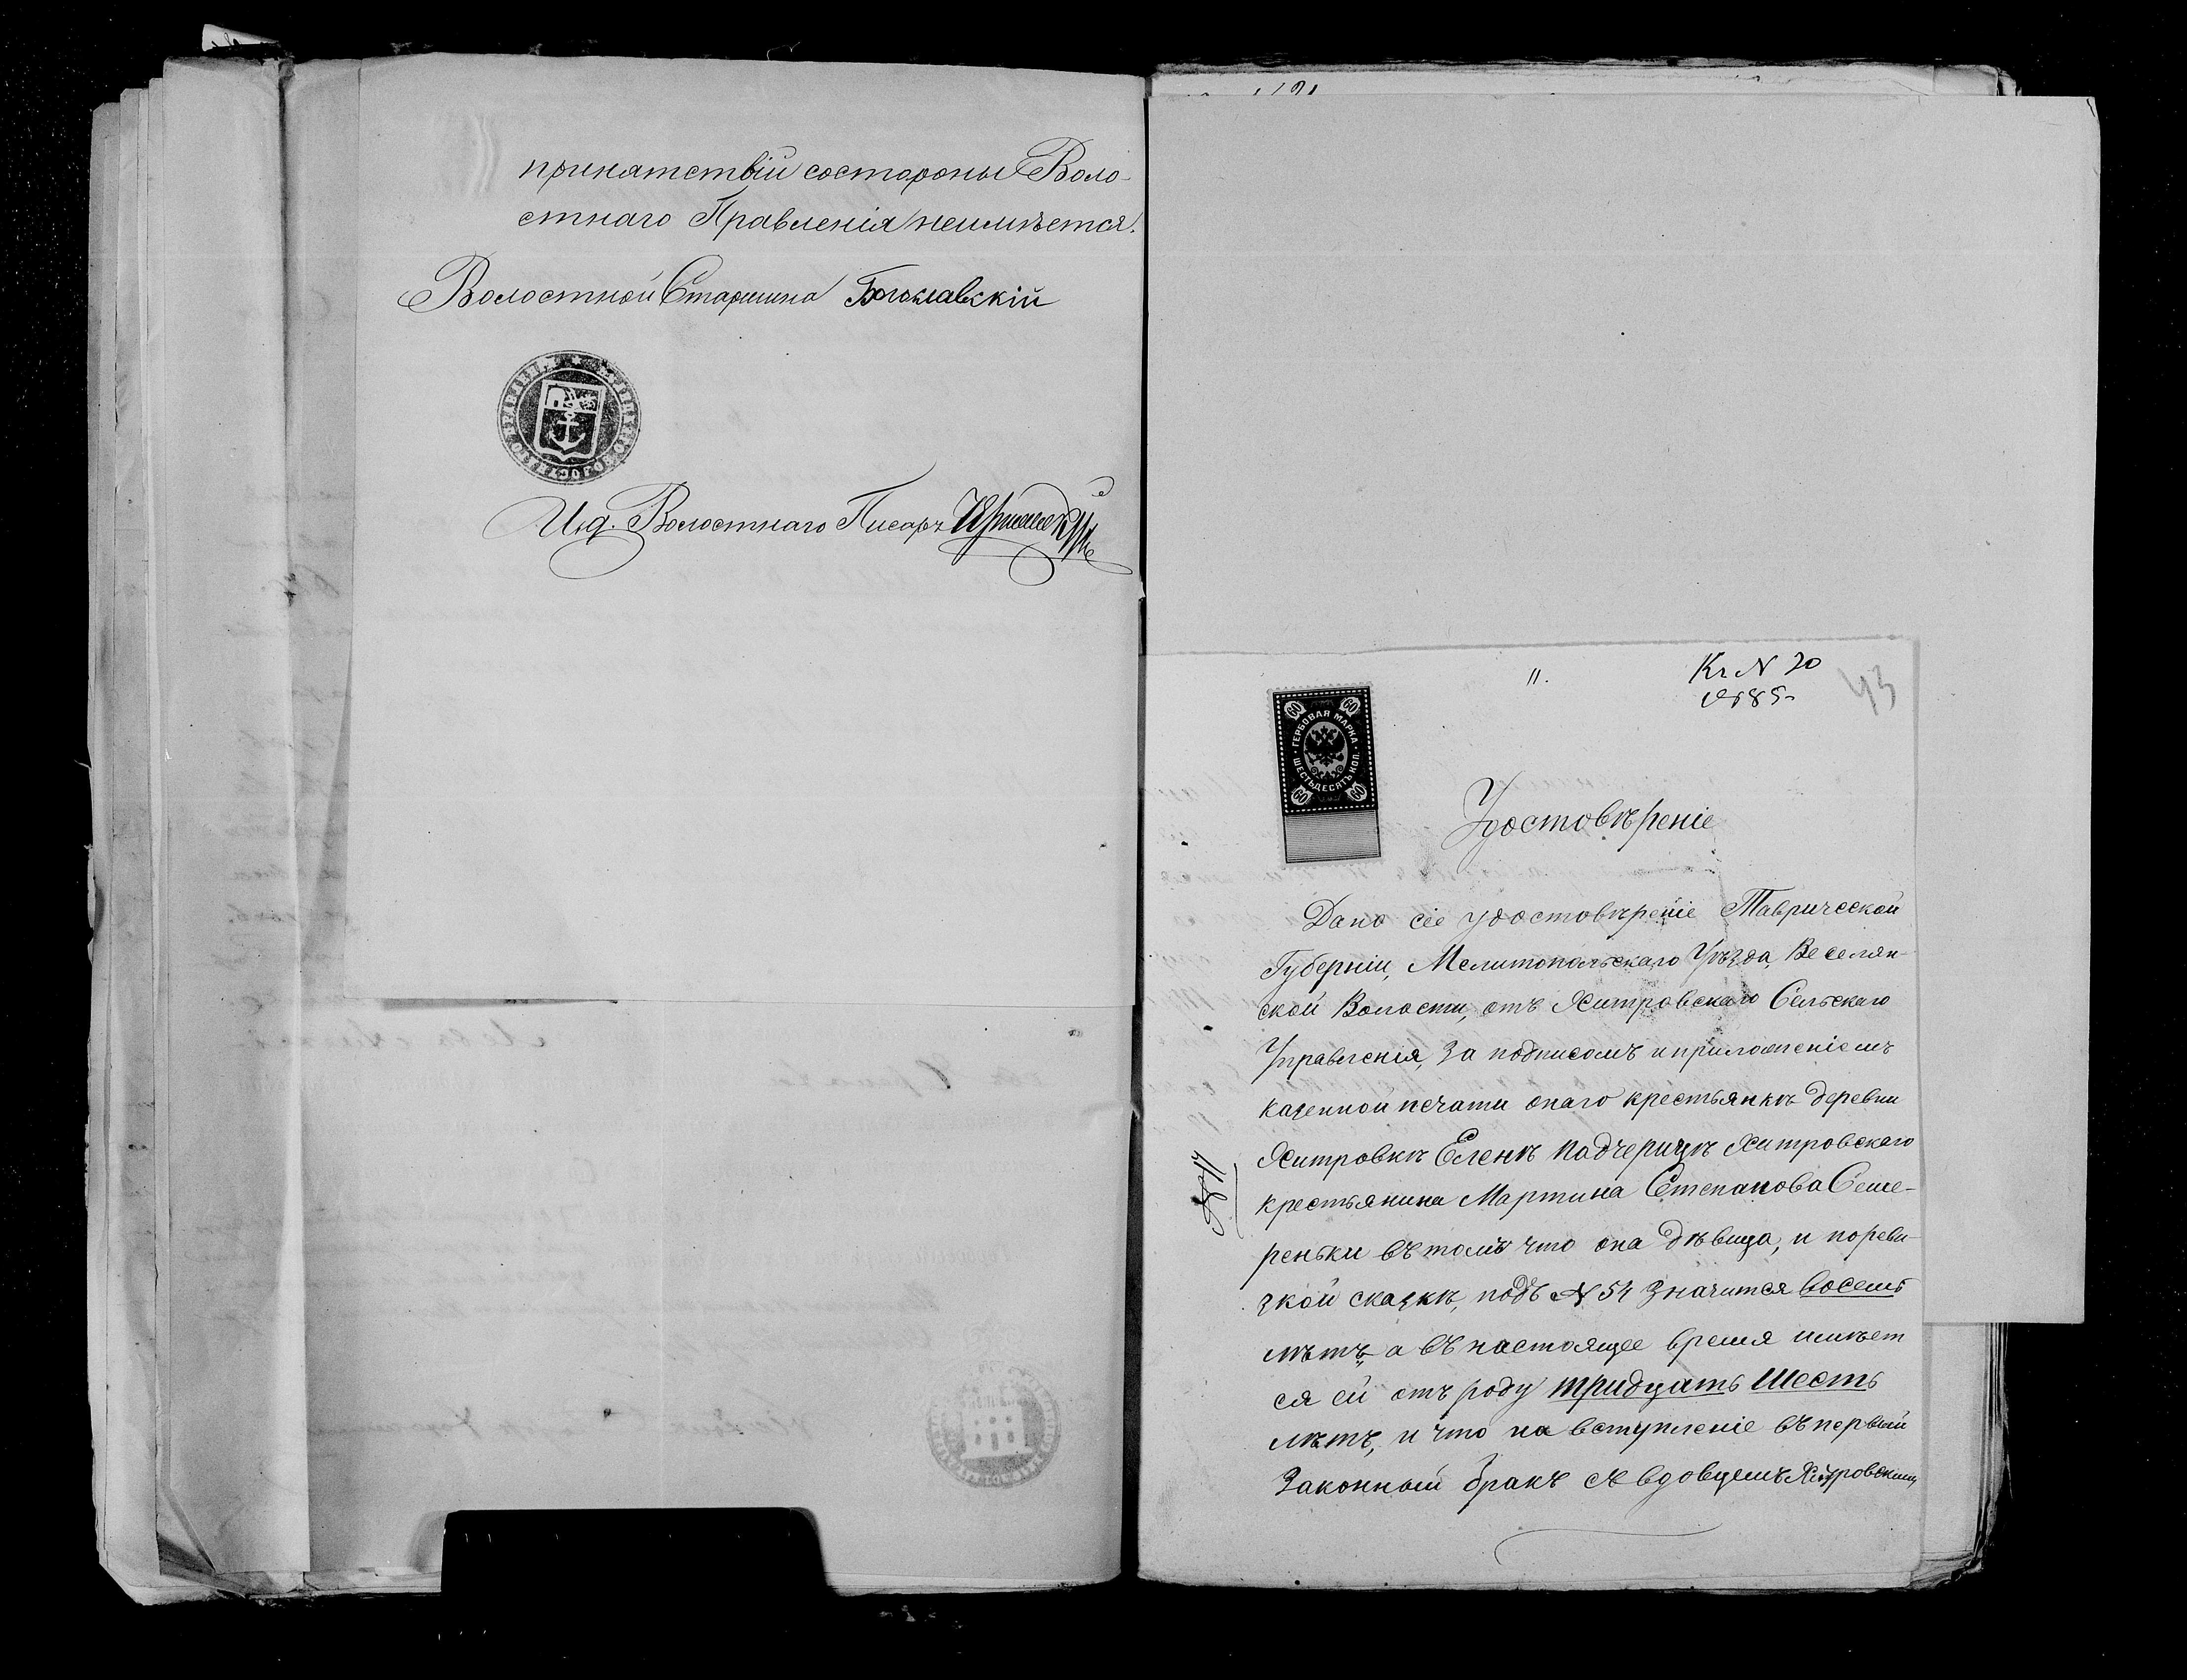 прикятствій состороны Воло-
стнаго Правленія неимѣется.
Волостной Старшина Богославскій
И.д. Волостнаго Писаря
11.
Кг N 20
43
60 60
ГЕРБОВАЯ МАРКА
ШЕСТЬДЕСЯТЪ КОП.
60 60
Удостовѣреніе
Дано сіе удостовѣреніе Таврической
Губерніи, Мелитопольскаго Уѣзда, Веселян-
ской Волости, отъ Хитровскаго Сельскаго
Управленія, за подписомъ и приложеніемъ
казенной печати онаго крестьянкѣ деревни
Хитровкѣ Еленѣ Падчерицѣ Хитровскаго
крестьянина Мартина Степанова Семе-
реньки въ томъ что она дѣвица, и по реви-
зкой сказкѣ, подъ N 54 значится восемь
лѣтъ, а въ настоящее время имѣет
ся ей отъ роду тридцать шесть
лѣтъ, и что на вступленіе въ первый
Законный бракъ съ вдовцемъ Хитровскимъ